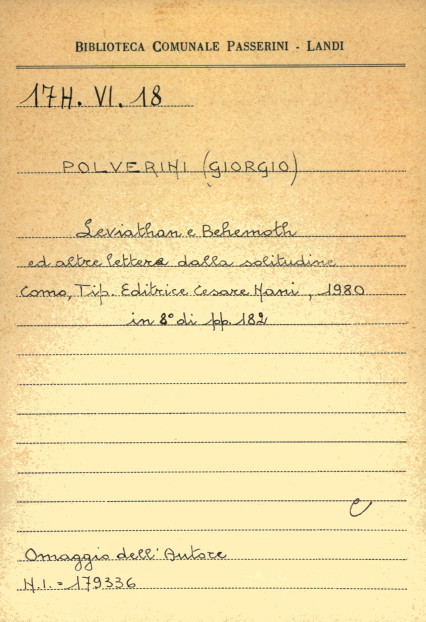 BIBLIOTECA COMUNALE PASSERINI - LANDI
17H. VI. 18
POLVERINI (GIORGIO)
Leviathan e Behemoth
ed altre lettere dalla solitudine
Como, Tip. Editrice Cesare Nani, 1980
in 8° di pp. 182
C
Omaggio dell'Autore
N.I. = 179336